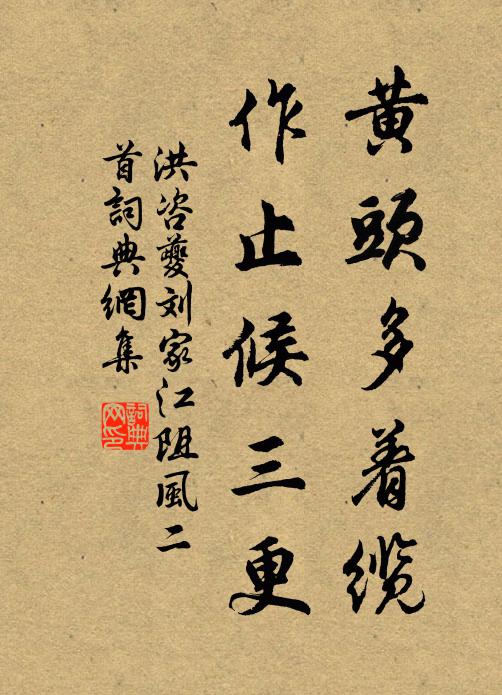 黄頭多着缆
作止候三更
洪咨夔刘家江阻風二
首詞典網集
詞典
网印